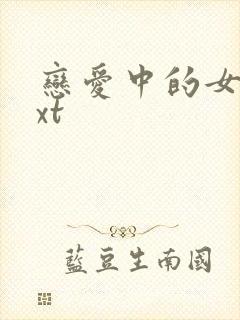 戀愛中的女
xt
藍豆生南國